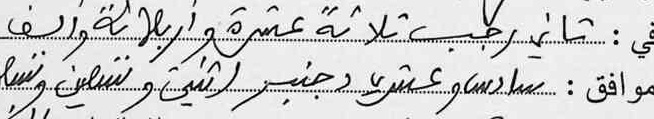 في : ثاني رجب ثلاثة عشرة وأربعمائة وألف
موافق : سادس وعشرين دجنبر اثنين وتسعين